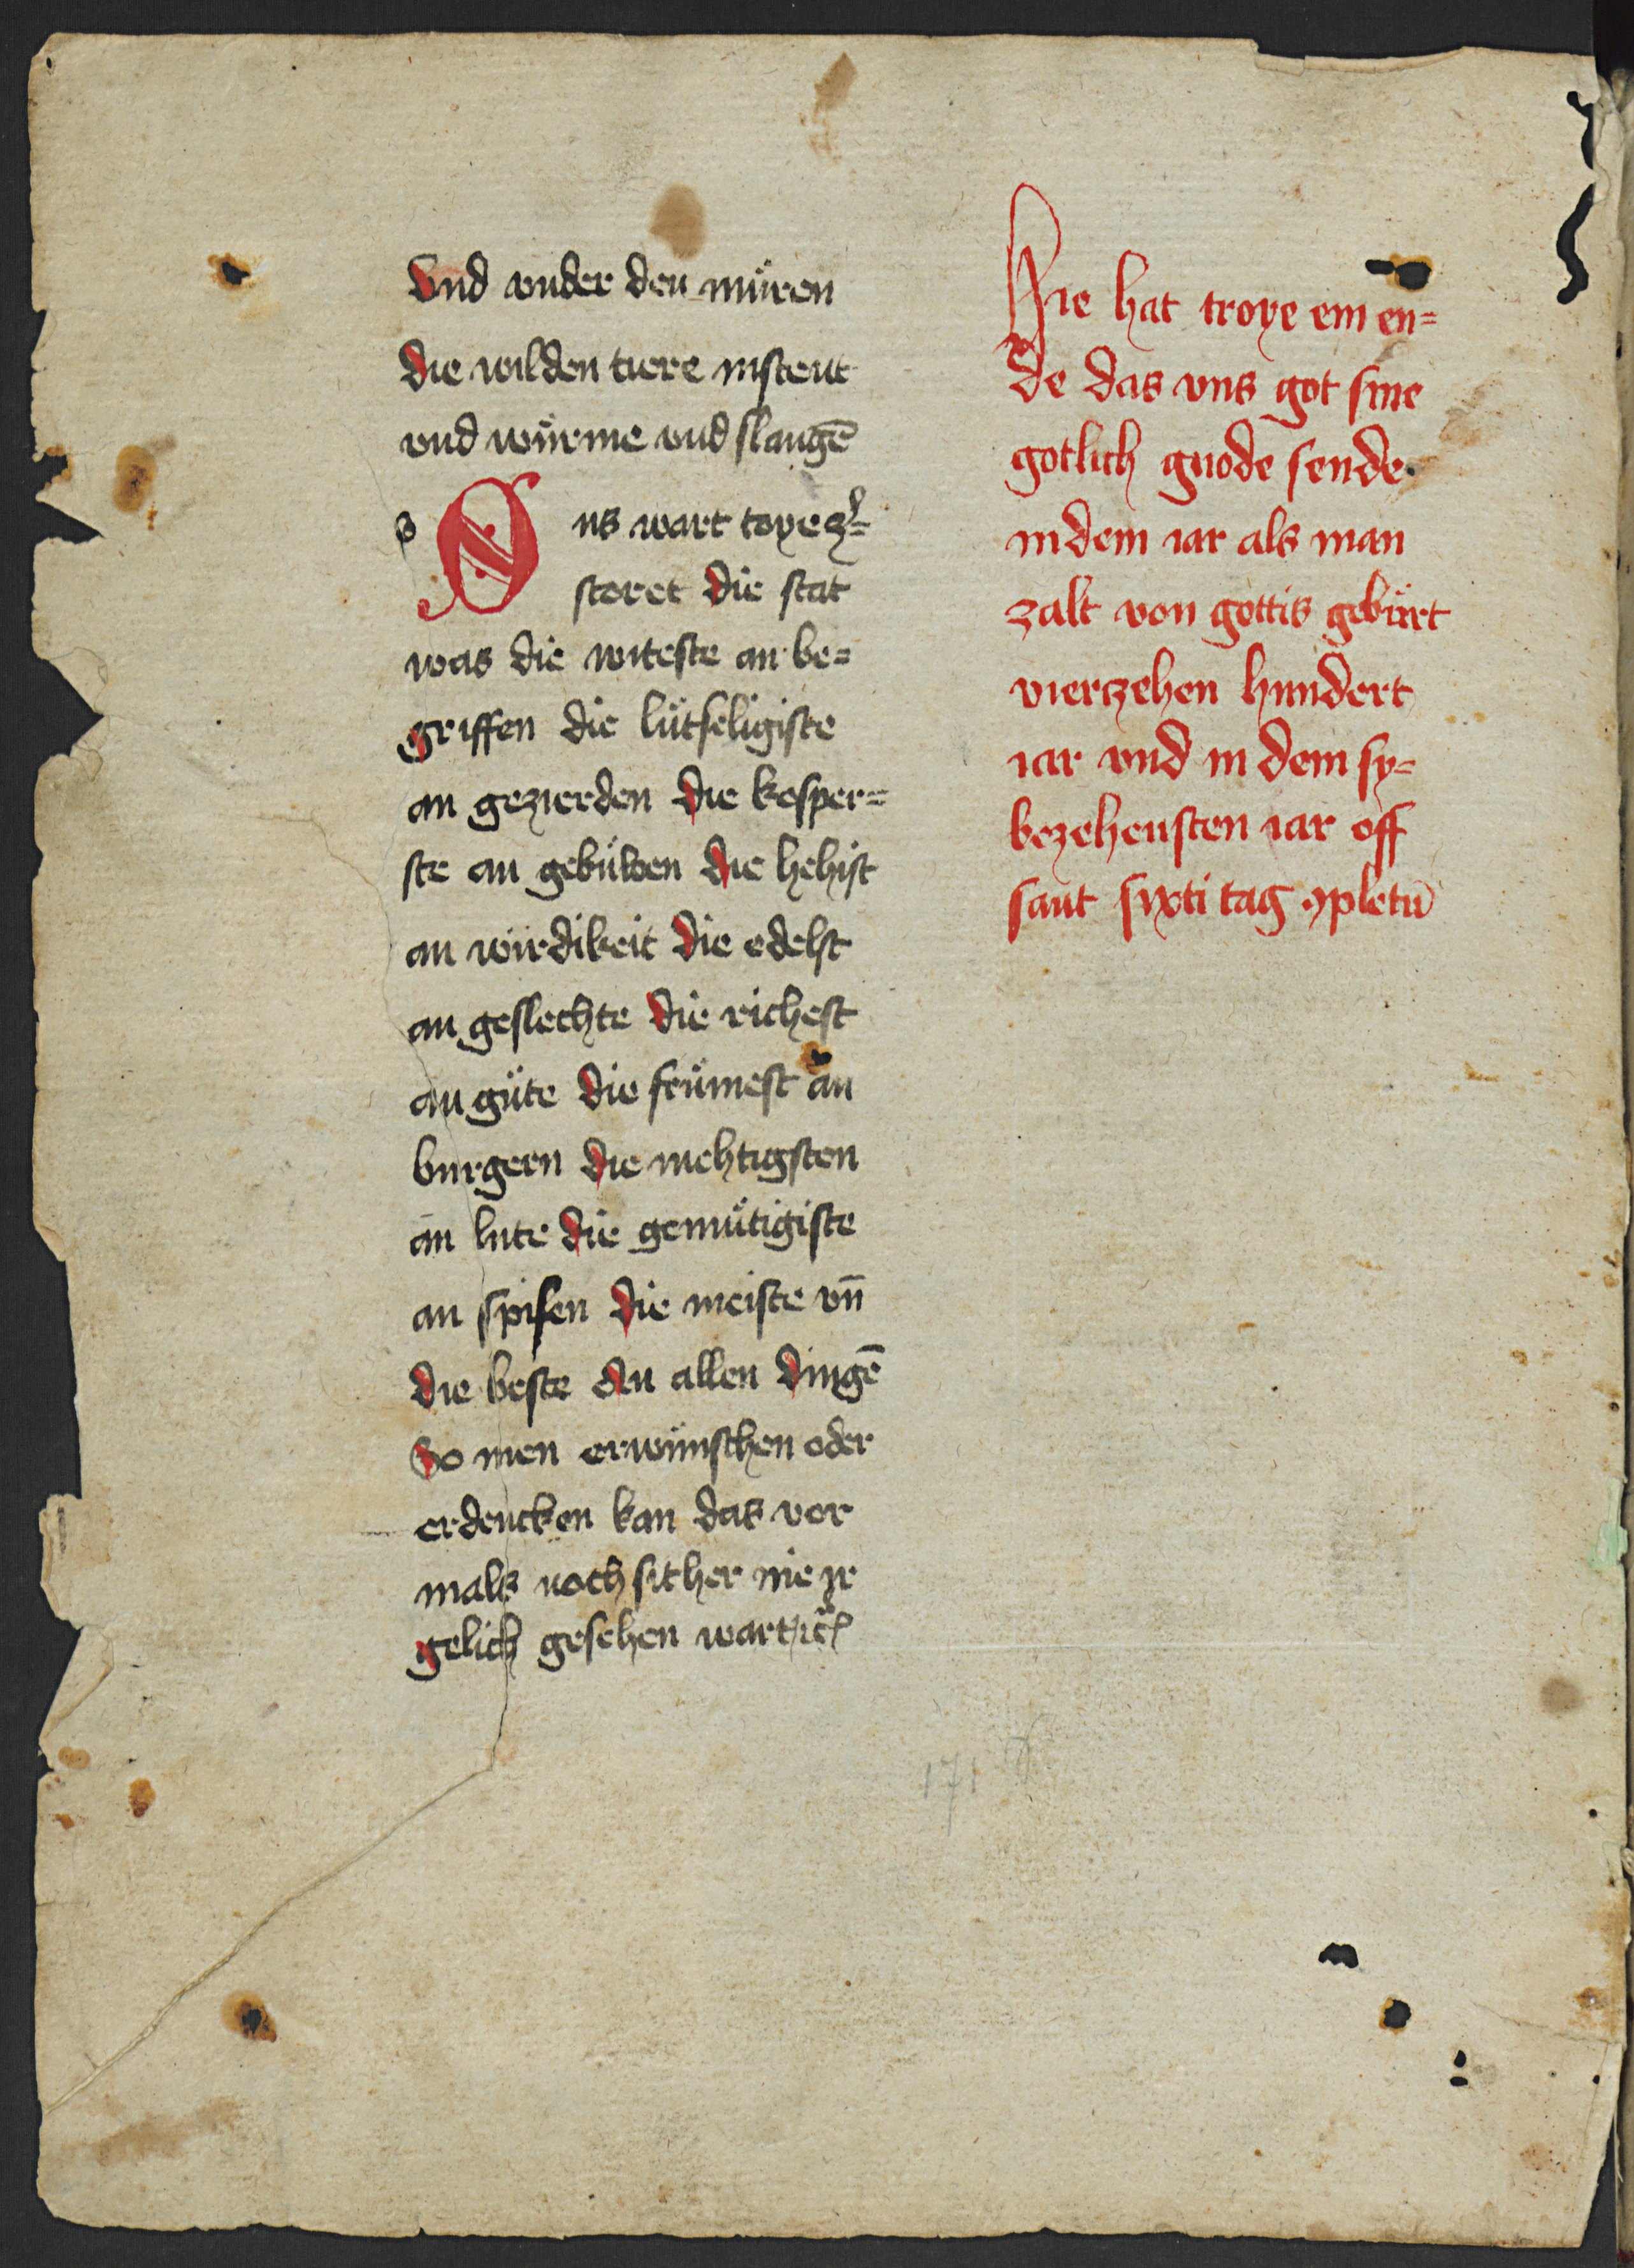 Vnd vnder den müren
die wilden tiere nistent
vnd würme vnd slangē
s
Sus wart toye zͤr=
storet die stat
was die witeste an be=
griffen die lütseligiste
an gezierden die kosper=
ste an gebüwen die hehist
an wirdikeit die edelst
an geslechte die richest
an güte die frümest an
burgern die mehtigsten
an lute die gemütigiste
an spisen die meiste vn̄
die beste an allen dingē
So men erwünschen oder
erdencken kan das vor
mals noch sither nie ir
gelich gesehen wart ꝛc̄
Hie hat troye ein en=
de das vns got sine
gotlich gnode sende
in dem iar als man
zalt von gottis gebürt
vierzehen hundert
iar vnd in dem sy=
bezehensten iar off
sant sixti tag ꝯpletū
171